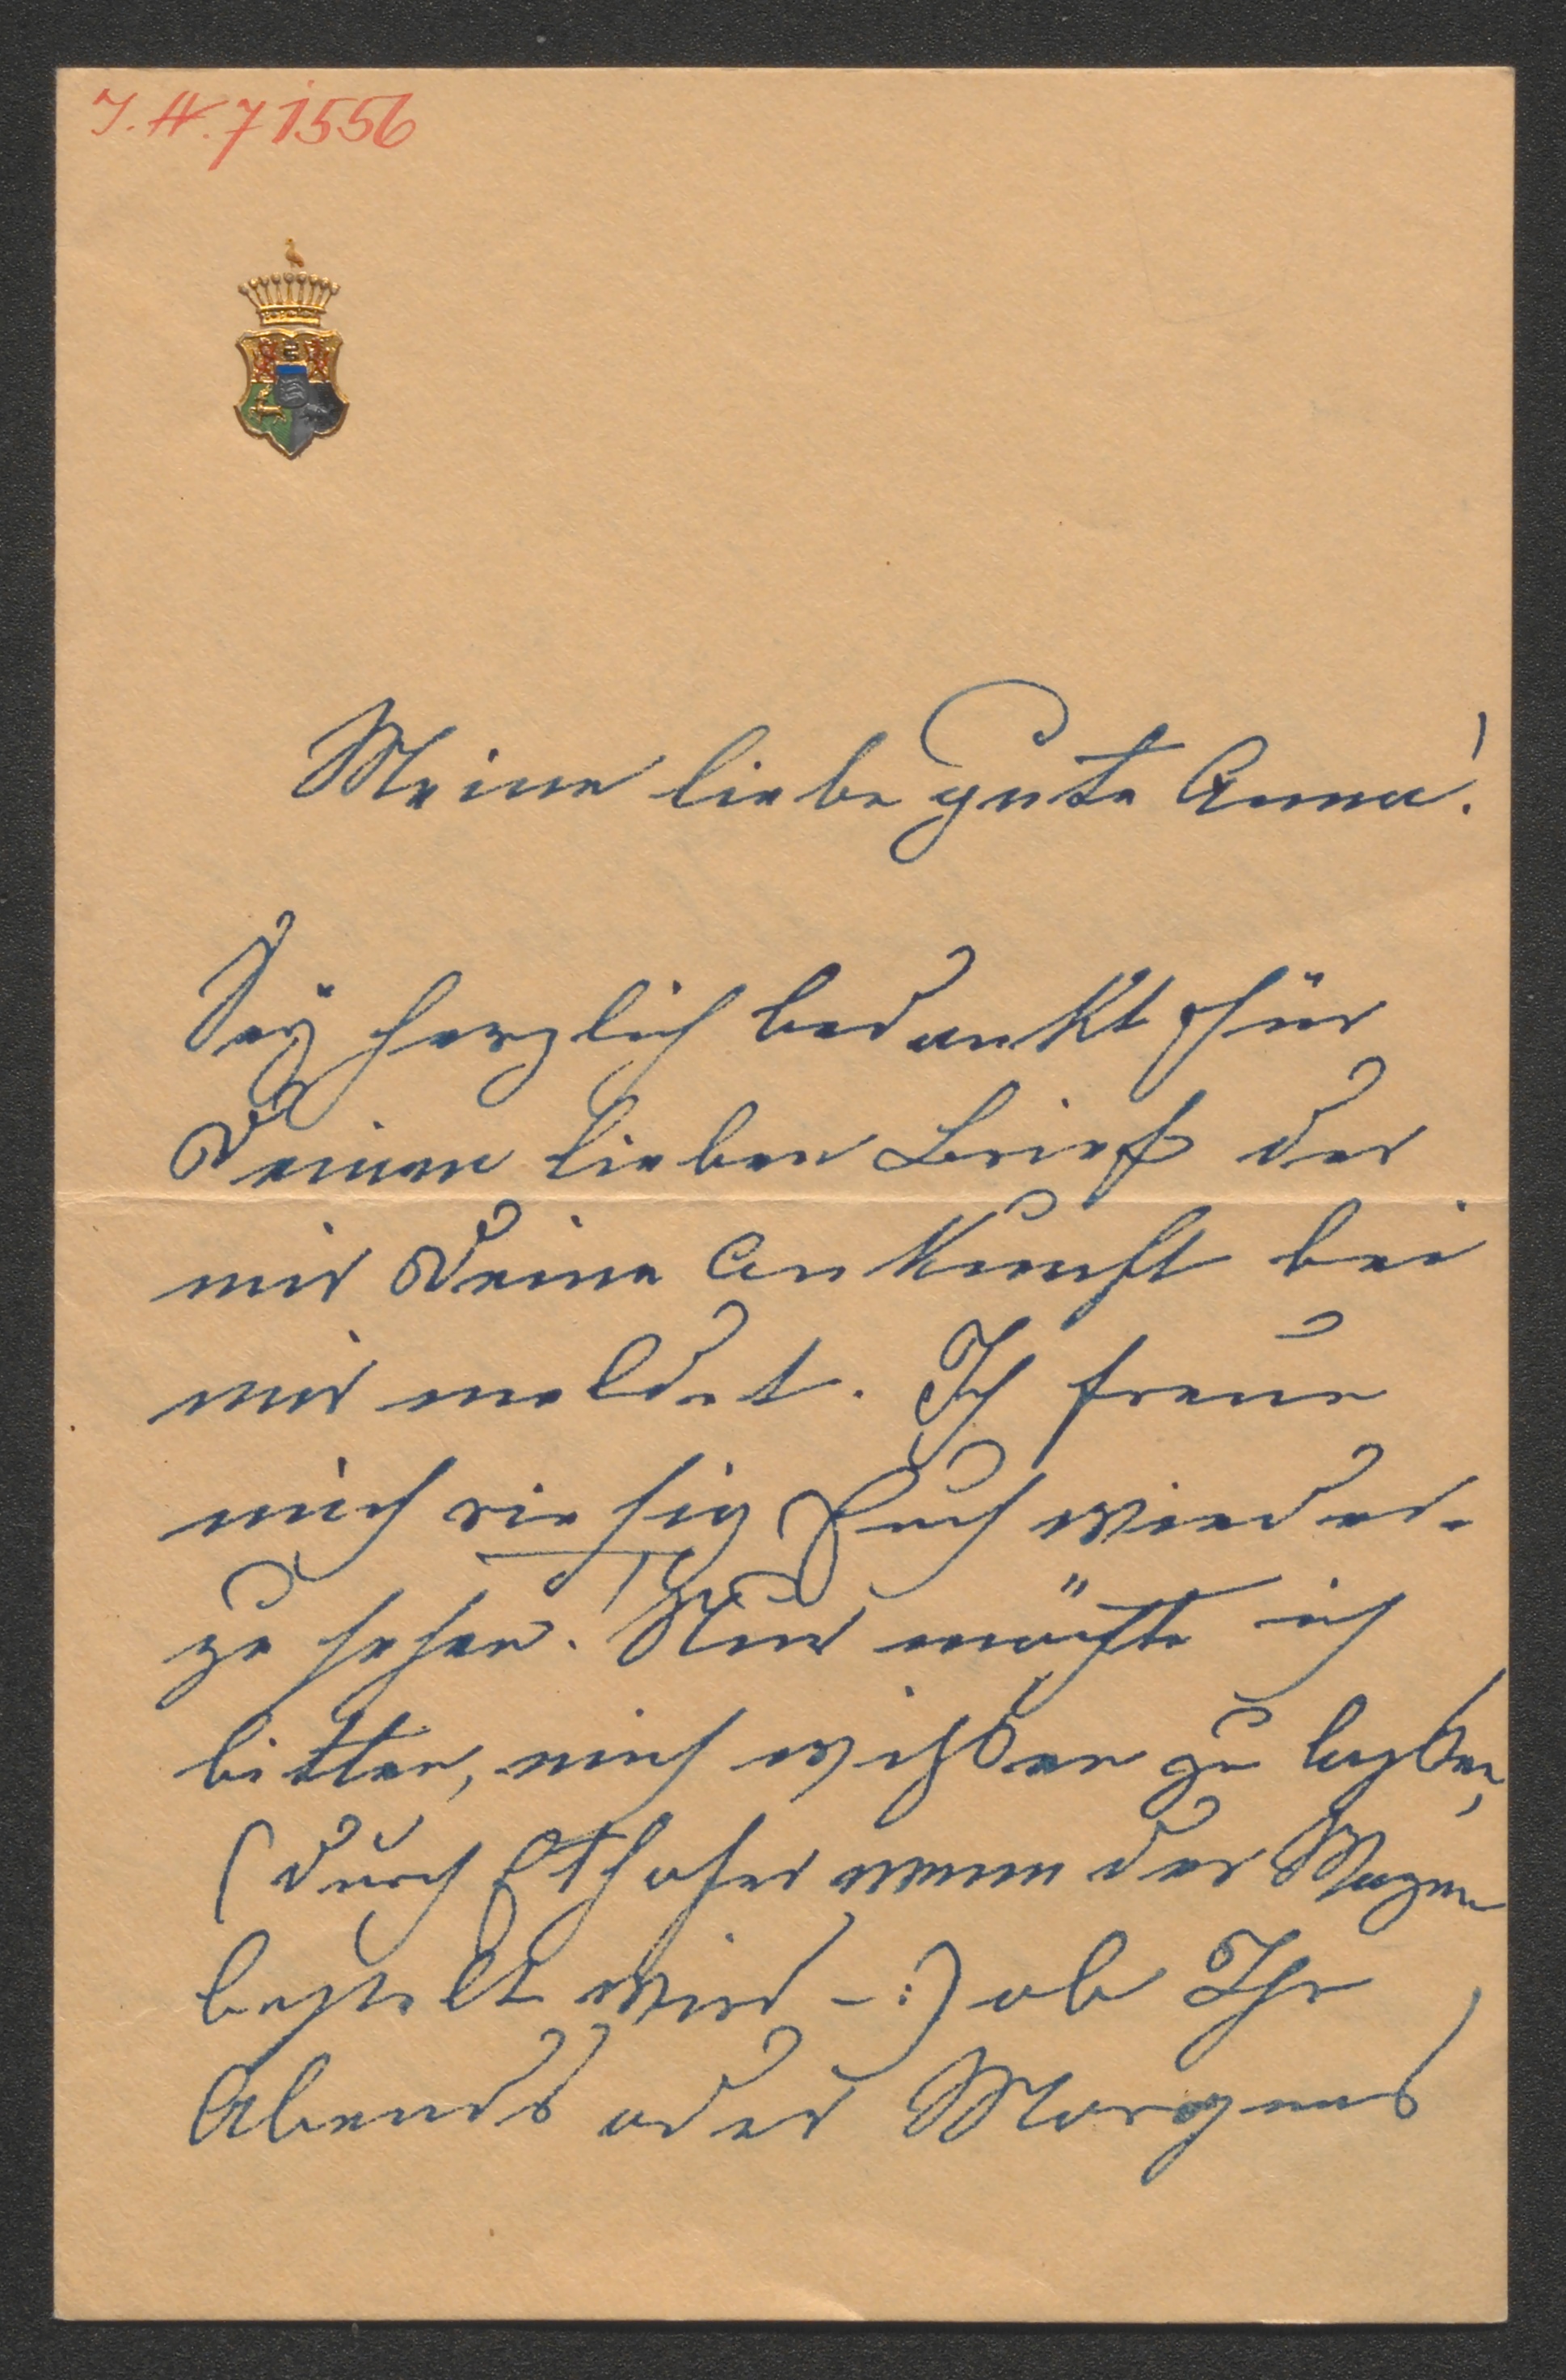 I.N. 71556
Meine liebe gute Anna!
Sey herzlich bedankt für
Deinen lieben Brief der
mir Deine Ankunft bei
mir meldet. Ich freue
mich riesig Euch wieder-
zu sehen. Nur möchte ich
bitten, mich wißen zu laßen,
(durch wenn der Wagen
bestellt wird -:) ob Ihr
Abends oder Morgens